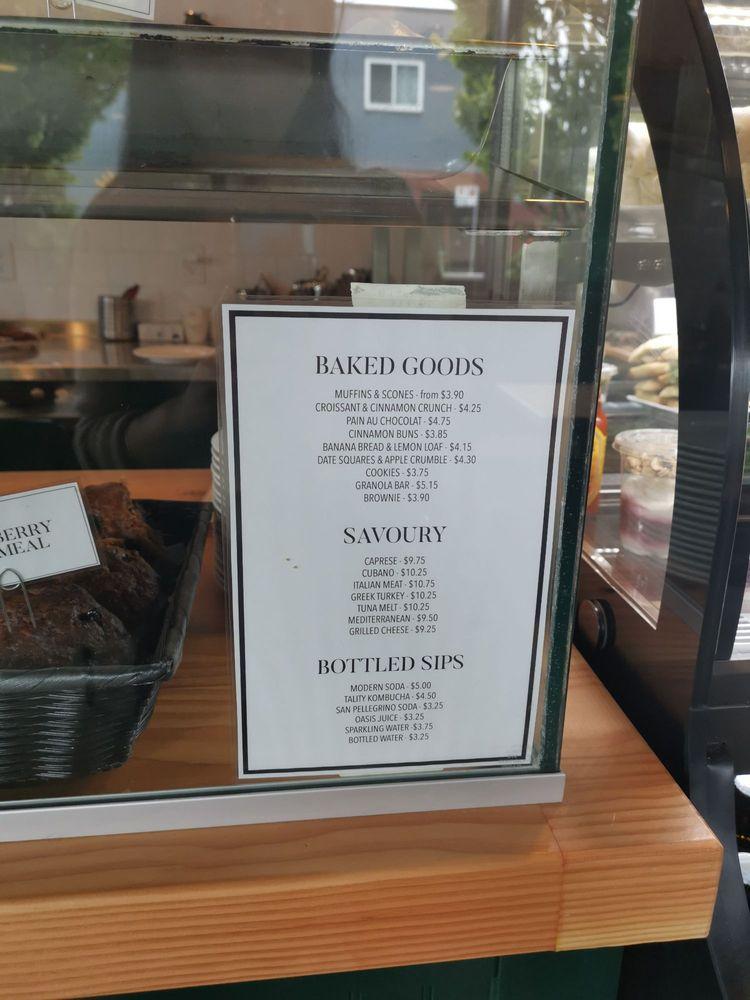 BERRY
MEAL
BAKED GOODS
MUFFINS & SCONES - from $3.90
CROISSANT & CINNAMON CRUNCH - $4.25
PAIN AU CHOCOLAT - $4.75
CINNAMON BUNS - $3.85
BANANA BREAD & LEMON LOAF - $4.15
DATE SQUARES & APPLE CRUMBLE - $4.30
COOKIES - $3.75
GRANOLA BAR - $5.15
BROWNIE - $3.90
SAVOURY
CAPRESE - $9.75
CUBANO - $10.25
ITALIAN MEAT - $10.75
GREEK TURKEY - $10.25
TUNA MELT - $10.25
MEDITERRANEAN - $9.50
GRILLED CHEESE - $9.25
BOTTLED SIPS
MODERN SODA - $5.00
TALITY KOMBUCHA - $4.50
SAN PELLEGRINO SODA - $3.25
OASIS JUICE - $3.25
SPARKLING WATER -$3.75
BOTTLED WATER - $3.25